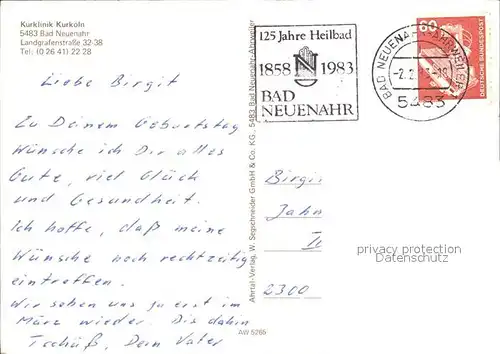 Kurklinik Kurköln
5483 Bad Neuenahr
Landgrafenstraße 32-38
Tel: (0 26 41) 22 28
125 Jahre Heilbad
1858 N 1983
BAD
NEUENAHR
BAD NEUENAHR-AHRWEILER
-2.2.
5483
60
DEUTSCHE BUNDESPOST
Liebe Birgit
Zu Deinem Geburtstag
wünsche ich Dir alles
Gute, viel Glück
und Gesundheit.
Ich hoffe, daß meine
Wünsche noch rechtzeitig
eintreffen.
Wir sehen uns ja erst im
März wieder. Bis dahin
Tschüß, Dein Vater
Ahrtal-Verlag, W. Segschneider GmbH & Co. KG, 5483 Bad Neuenahr-Ahrweiler
AW 5265
Birgi
Jahn
2300
privacy protection
Datenschutz